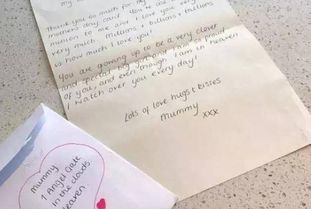 my
Thank you so much for my
mother's day card. You are so
to me and I love you very
very much. Millions + billions + trillions
is how much I love you!
You are growing up to be a very clever
and special boy and Dad is proud
of you, and even though I am in heaven
I watch over you every day!
Lots of love hugs + kisses
Mummy xxx
Mummy
1 Angel Gate
In the clouds
Heaven.